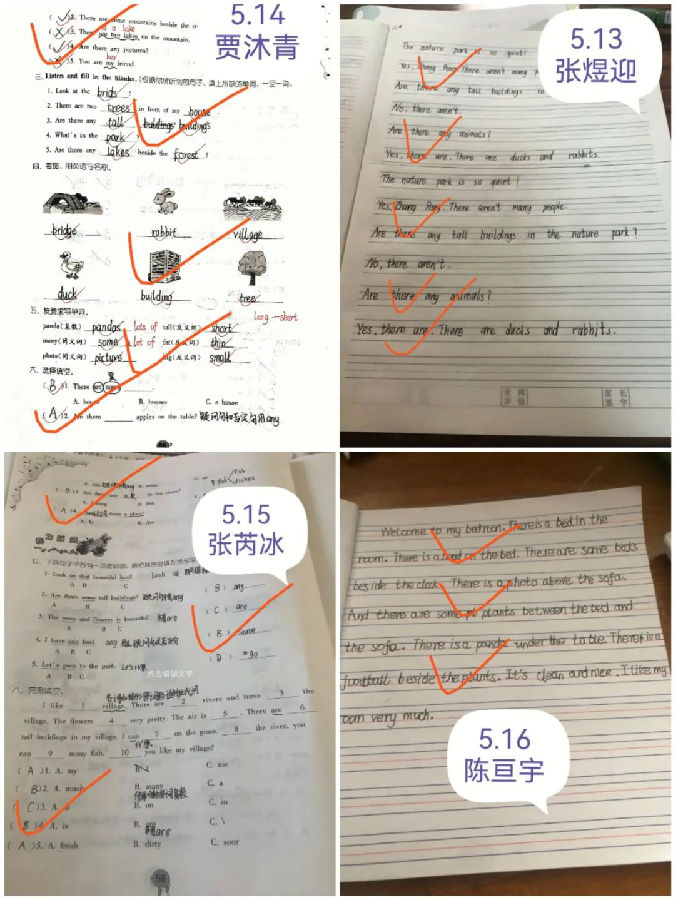 5.14
贾沐青
( √ )2. There are some mountains beside the
( X )3. There is a lake on the mountain.
( √ )4. Are there any pictures?
( X )5. You are my friend.
her
三. Listen and fill in the blanks.
1. Look at the bridge !
2. There are two trees in front of my house
3. Are there any tall buildings buildings
4. What's in the park
5. Are there any lakes beside the forest ?
四. 看图, 用英语写名称。
bridge rabbit village
duck building tree
五. 按要求写单词。
long—short
panda(复数) pandas lots of tall(反义词) short
many(同义词) some a lot of fat(反义词) thin
photo(同义词) picture big(反义词) small
六. 选择填空。
( B )1. There are many
B. houses C. a house
( A )2. Are there ______ apples on the table? 疑问句和否定句用any
5.13
张煜迎
The nature park is so quiet!
Yes, Zhang Peng. There aren't many
Are there any tall buildings in
No, there aren't.
Are there any animals?
Yes, there are. There are ducks and rabbits.
The nature park is so quiet!
Yes, Zhang Peng. There aren't many people.
Are there any tall buildings in the nature park?
No, there aren't.
Are there any animals?
Yes, there are. There are ducks and rabbits.
家长
签字
5.15
张芮冰
fish
fishes
1. Look on that beautiful bird! Look at
A B C
2. Are there some tall buildings? 疑问句用any ( B ) any
A B C
3. The trees and flowers is beautiful. ( C ) are
A B C
4. I have any food. ( B ) some
A B C
5. Let's goes to the park. ( B ) go
A B C
点击编辑文字
八. 完形填空。
I like 1 village. There are 2 rivers and trees 3 the
village. The flowers 4 very pretty. The air is 5 . There are 6
tall buildings in my village. I can 7 on the grass. 8 the river, you
can 9 many fish. 10 you like my village?
( A )1. A. my IN C. me
( B )2. A. much B. many C. a
( C )3. A. at B. on C. in
( B )4. A. is B. are C. \
( A )5. A. fresh B. dirty C. sour
56
Welcome to my bedroom. There is a bed in the
room. There is a on the bed. There are some books
beside the clock. There is a photo above the sofa.
And there are some plants between the bed and
the sofa. There is a panda under the table. There is a
football beside the plants. It's clean and nice. I like my
oom very much.
5.16
陈亘宇